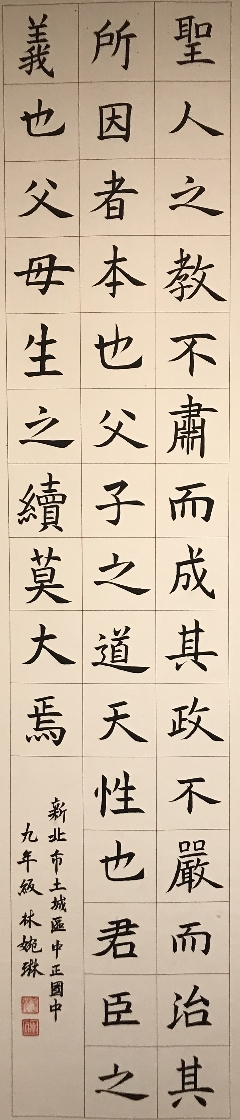 聖人之教不肅而成其政不嚴而治其
所因者本也父子之道天性也君臣之
義也父母生之續莫大焉
新北市土城區中正國中
九年級 林婉琳